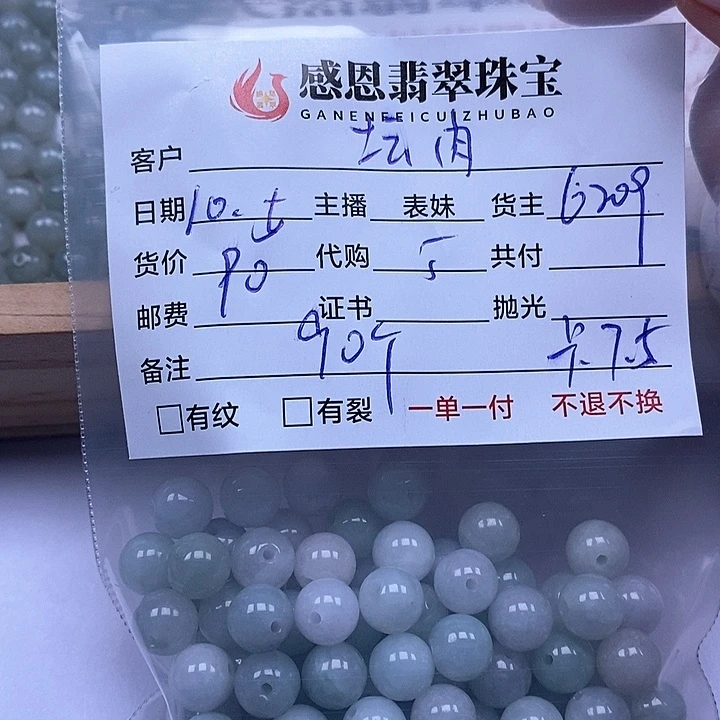 感恩翡翠珠宝
GANENFEICUIZHUBAO
客户 坛肉
日期 10.5 主播 表妹 货主 6209
货价 90 代购 5 共付
邮费 证书 抛光
备注 90个 7.5
□有纹 □有裂 一单一付 不退不换